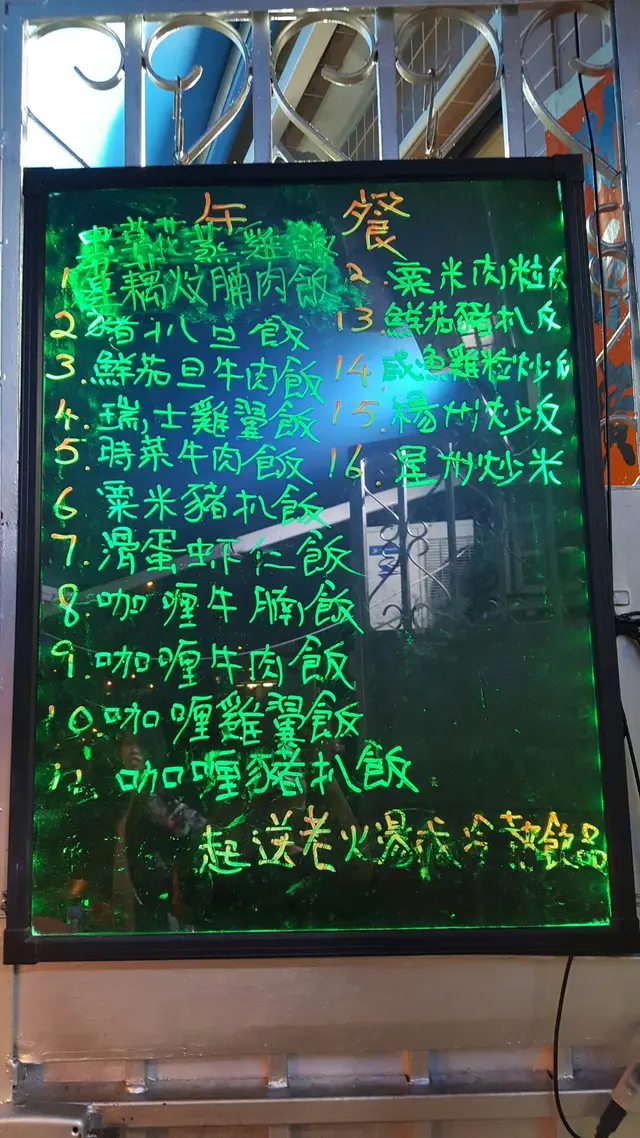 午 餐
草花蒸雞飯
1 蓮藕炆腩肉飯
2 豬扒旦飯
3. 鮮茄旦牛肉飯
4. 瑞士雞翼飯
5. 時菜牛肉飯
6 粟米豬扒飯
7. 滑蛋虾仁飯
8. 咖喱牛腩飯
9. 咖喱牛肉飯
10. 咖喱雞翼飯
咖喱豬扒飯
2. 粟米肉粒
13 鮮茄豬扒
14. 咸魚雞粒炒
15. 楊州炒饭
16. 星州炒米
起送老火湯或冷熱飲品